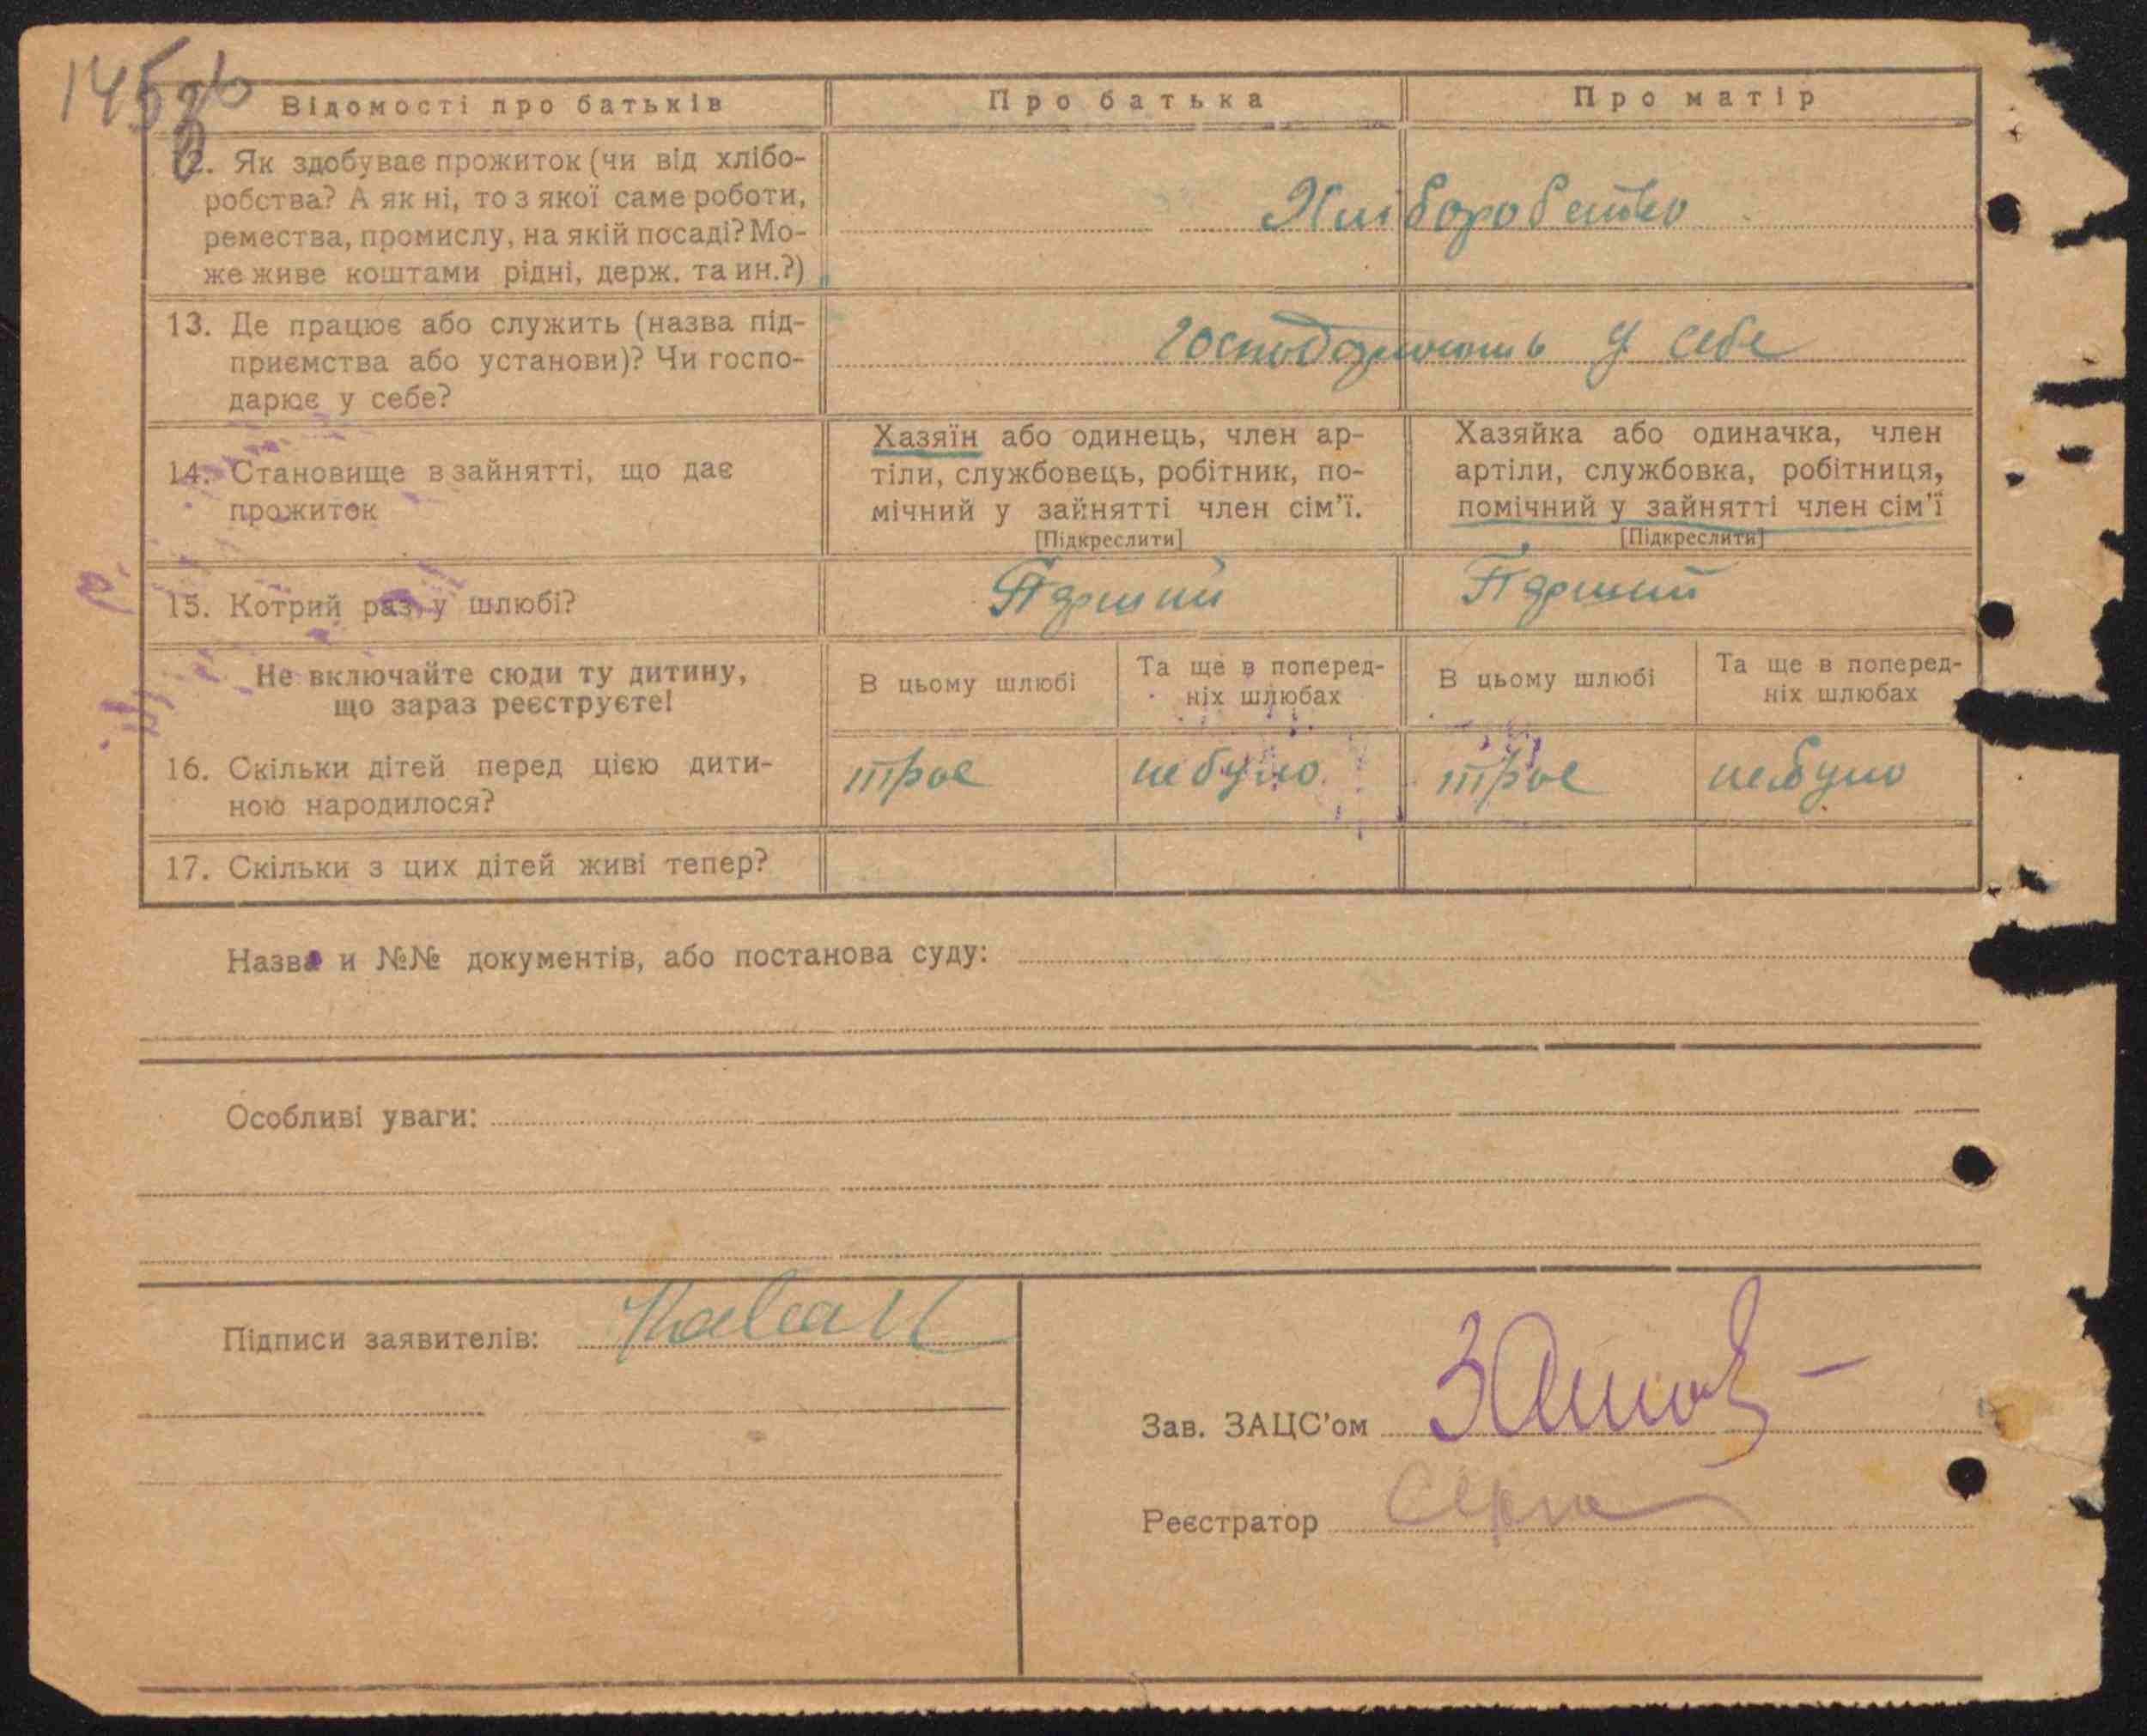 145
Відомості про батьків
Про батька
Про матір
12. Як здобуває прожиток (чи від хлібо-
робства? А як ні, то з якої саме роботи,
ремества, промислу, на якій посаді? Мо-
же живе коштами рідні, держ. та ин.?)
Хліборобство
13. Де працює або служить (назва під-
приємства або установи)? Чи госпо-
дарює у себе?
господарюють у себе
14. Становище в зайнятті, що дає
прожиток
Хазяїн або одинець, член ар-
тіли, службовець, робітник, по-
мічний у зайнятті член сім'ї.
[Підкреслити]
Хазяйка або одиначка, член
артіли, службовка, робітниця,
помічний у зайнятті член сім'ї
[Підкреслити]
15. Котрий раз у шлюбі?
Перший
Перший
Не включайте сюди ту дитину,
що зараз реєструєте!
В цьому шлюбі
Та ще в поперед-
ніх шлюбах
В цьому шлюбі
Та ще в поперед-
ніх шлюбах
16. Скільки дітей перед цією дити-
ною народилося?
троє
небуло
троє
небуло
17. Скільки з цих дітей живі тепер?
Назва и №№ документів, або постанова суду:
Особливі уваги:
Підписи заявителів:
Зав. ЗАЦС'ом
Реєстратор